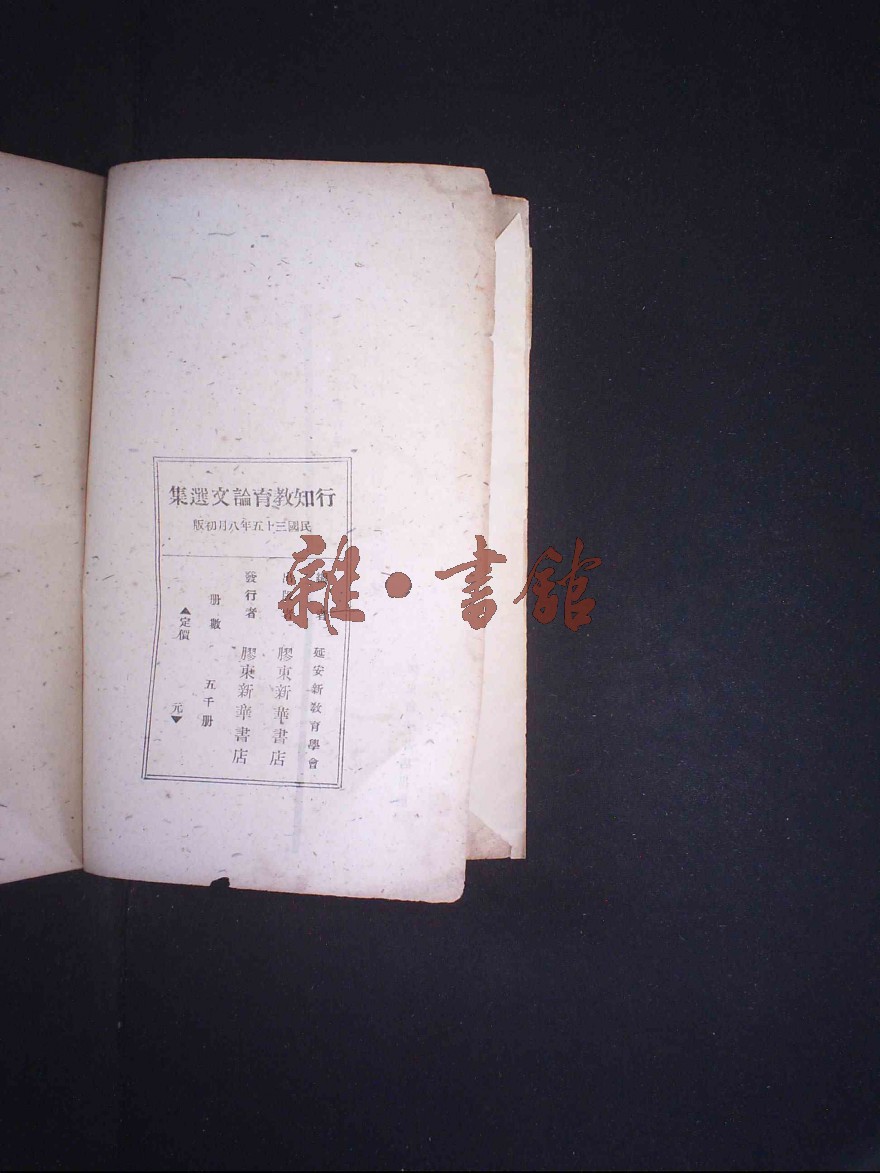 行知教育論文選集
民國三十五年八月初版
者 延安新教育學會
出版者 膠東新華書店
發行者 膠東新華書店
册數 五千册
▲定價 元▼
雜·書館